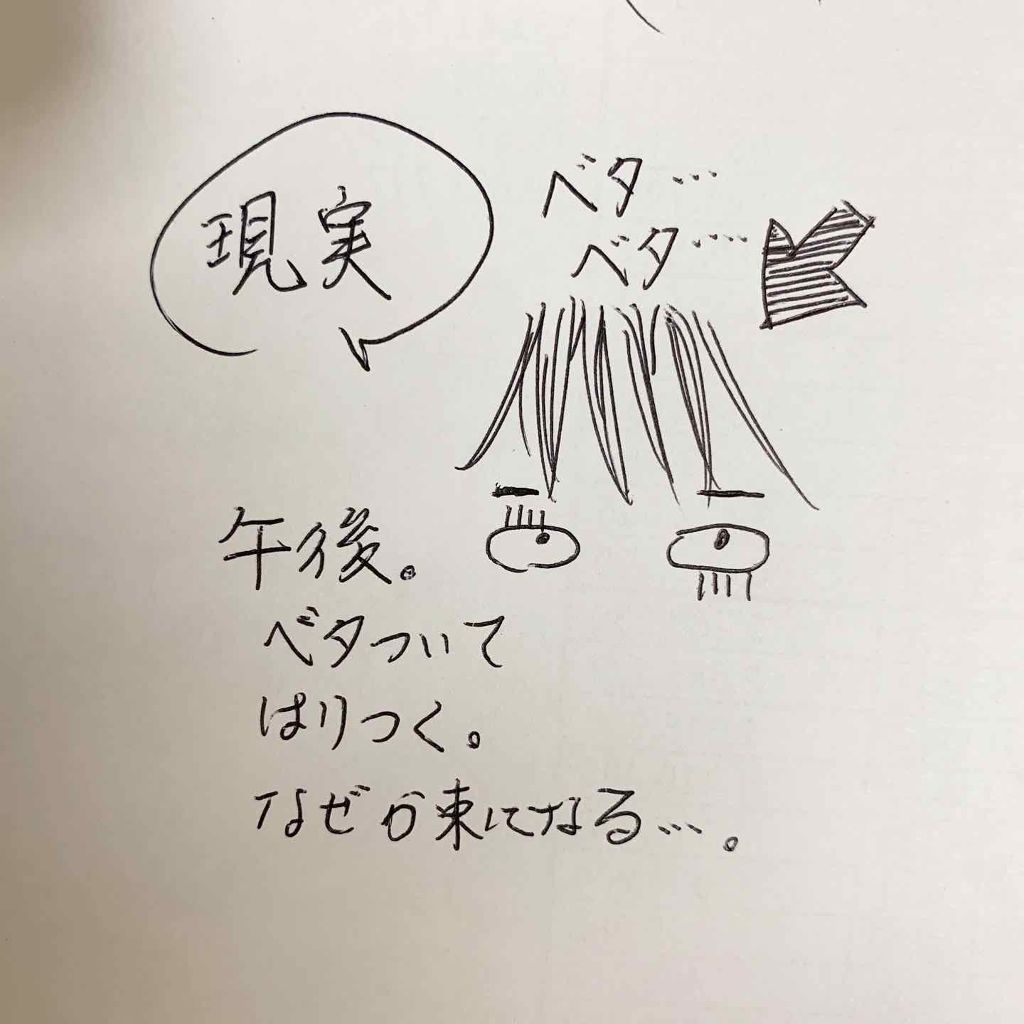 現実
ベタ…
ベタ……
午後。
ベタついて
はりつく。
なぜか束になる…。